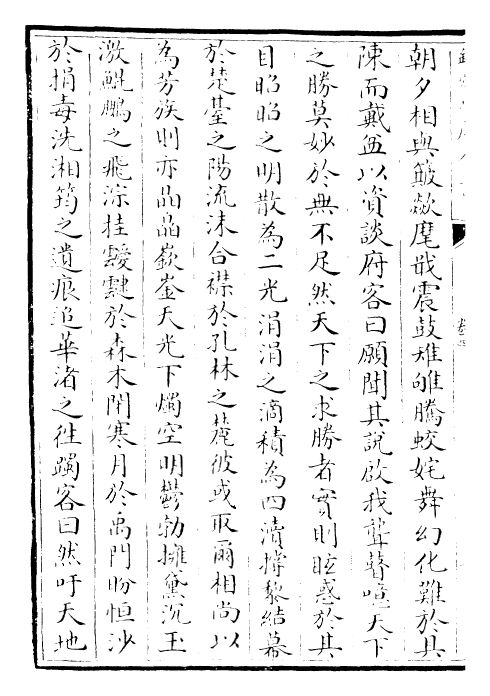 朝夕相與簸歘麾戢震鼓雄雌騰蛟姹舞幻化難於具
陳而戴盆以資談府客曰願聞其說啟我聾瞽噫天下
之勝莫妙於無不足然天下之求勝者實則眩惑於其
目昭昭之明散為二光涓涓之滴積為四瀆摶黎結幕
於楚臺之陽流沫合襟於孔林之麓彼或取爾相尚以
為芳族則亦皛皛嶔崟天光下燭空明鬱勃擁黛沉玉
激鯤鵬之飛淙挂靉靆於森木閉寒月於禹門盼恒沙
於捐毒洗湘筠之遺痕追華渚之徃躅客曰然吁天地